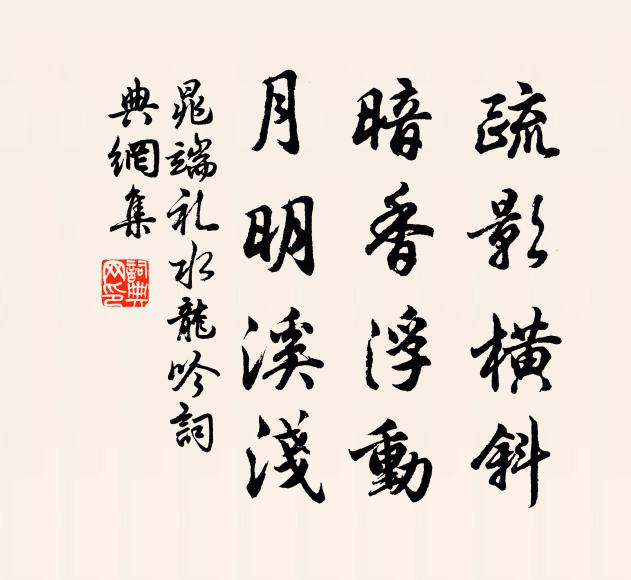 疏影橫斜
暗香浮動
月明溪淺
晁端礼水龍吟詞
典網集
詞典
网印